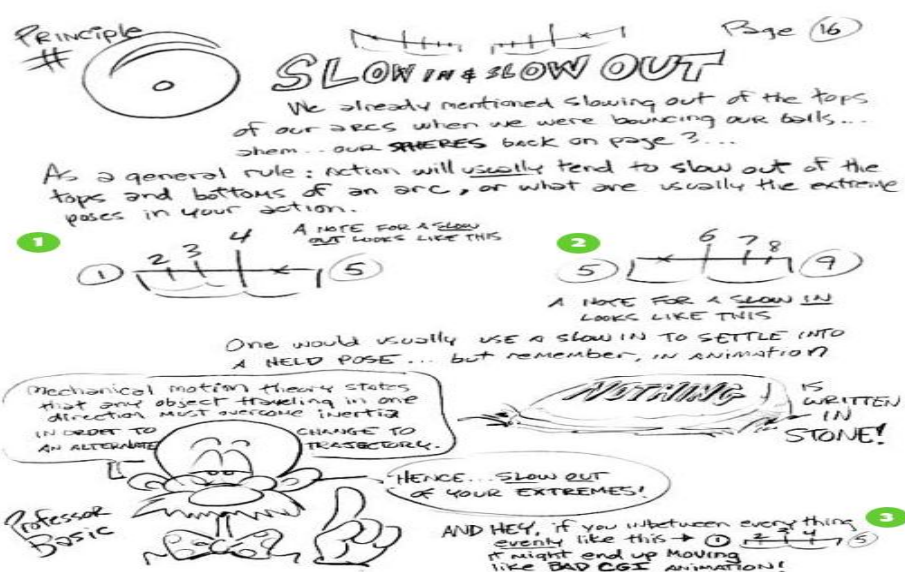 PRINCIPLE
#
Page 16
SLOW IN & SLOW OUT
We already mentioned slowing out of the tops
of our arcs when we were bouncing our balls...
ahem... our SPHERES back on page 3...
As a general rule: Action will usually tend to slow out of the
tops and bottoms of an arc, or what are usually the extreme
poses in your action.
1
A NOTE FOR A SLOW
OUT LOOKS LIKE THIS
1 2 3 4 5
2
5 6 7 8 9
A NOTE FOR A SLOW IN
LOOKS LIKE THIS
One would usually USE A SLOW IN TO SETTLE INTO
A HELD POSE... but remember, IN ANIMATION
NOTHING
IS
WRITTEN
IN
STONE!
Mechanical motion theory states
that any object traveling in one
direction must overcome inertia
IN ORDER TO CHANGE TO
AN ALTERNATE TRAJECTORY.
HENCE... SLOW OUT
OF YOUR EXTREMES!
Professor
Basic
3
AND HEY, if you inbetween every thing
evenly like this → 1 2 3 4 5
it might end up moving
like BAD CGI ANIMATION!